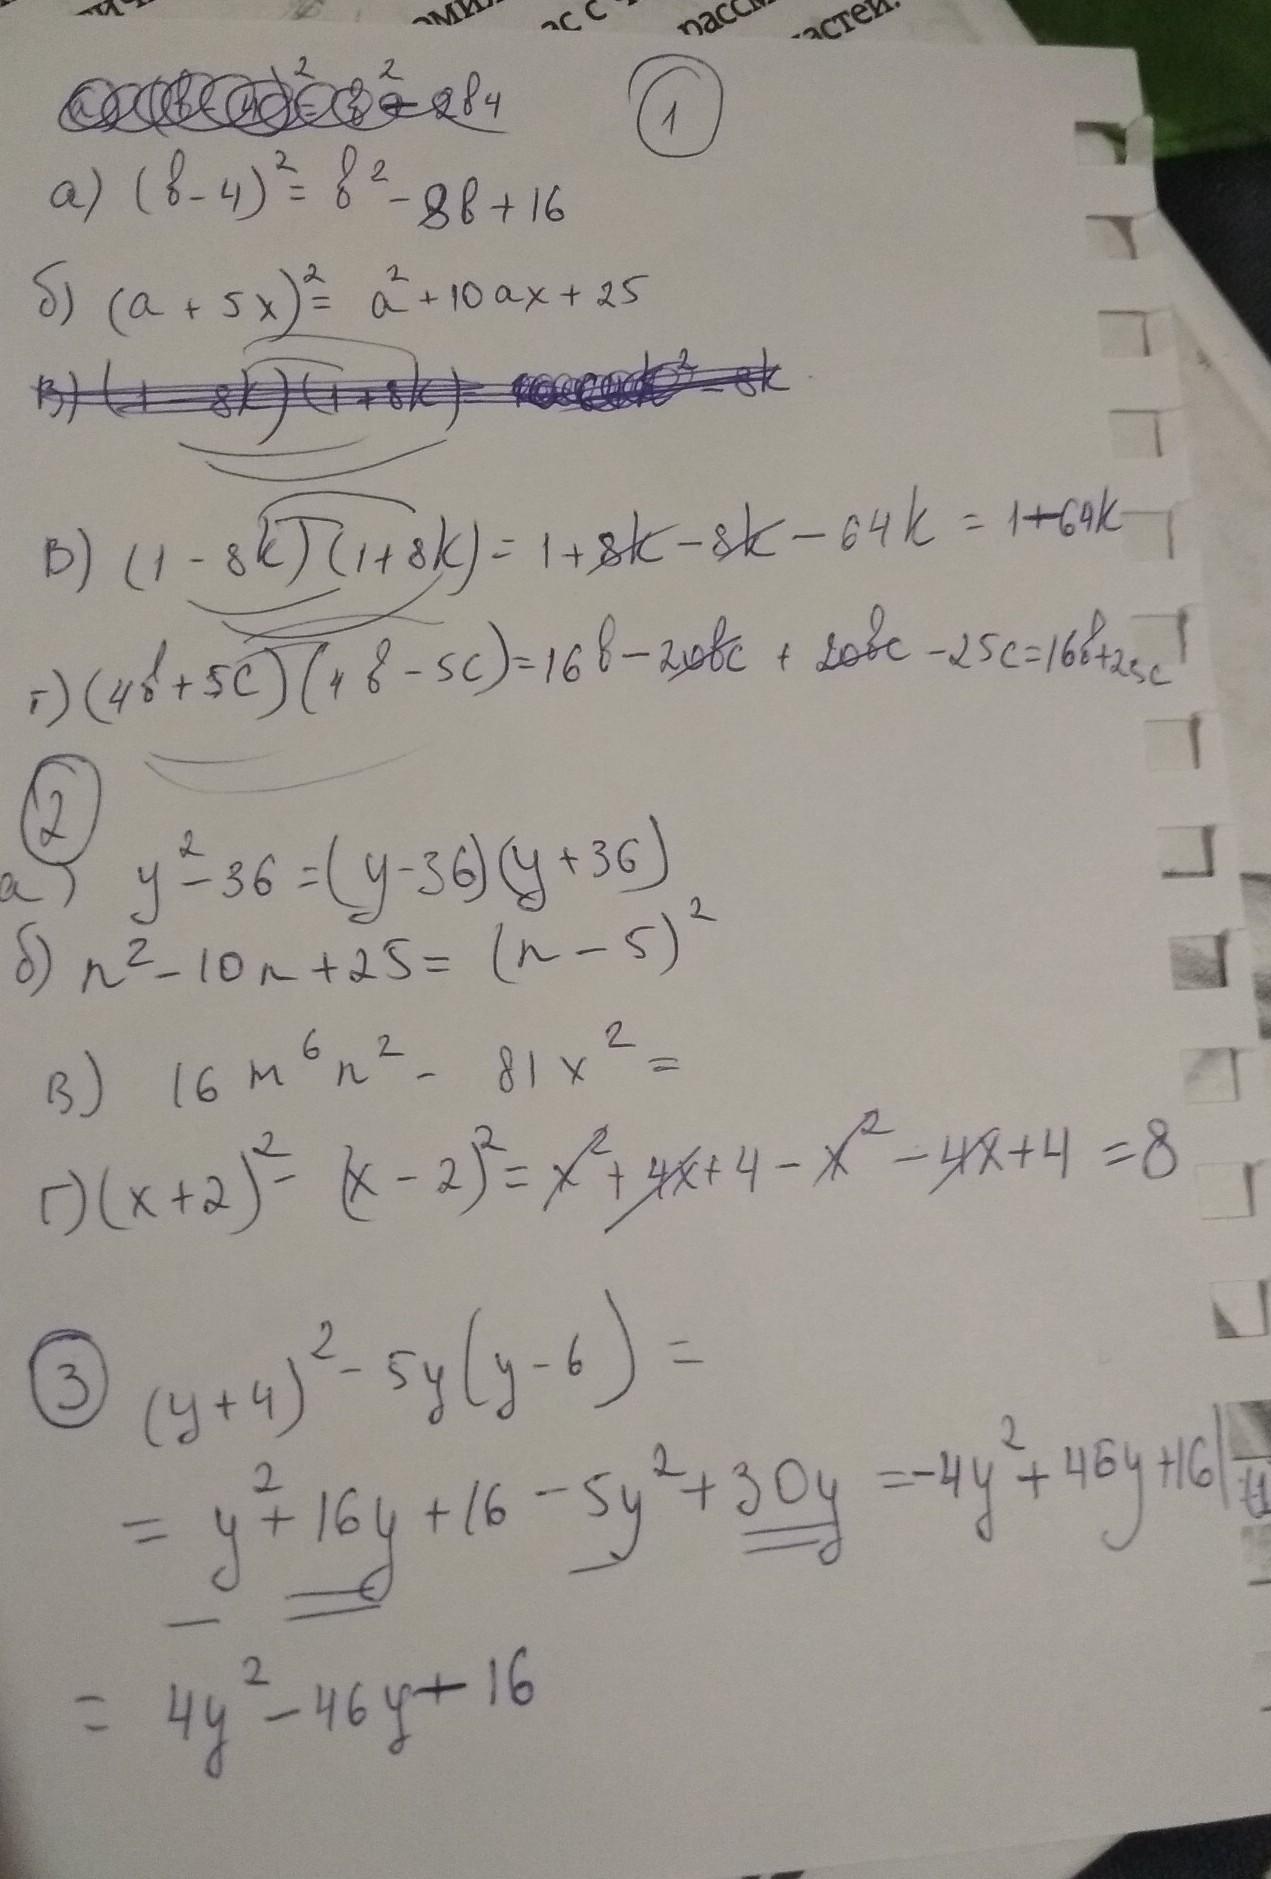 1
а) (b-4)² = b² - 8b + 16
б) (a + 5x)² = a² + 10ax + 25
в) (1 - 8k)(1+8k)
в) (1 - 8k)(1+8k) = 1 + 8k - 8k - 64k = 1+64k
г) (4b + 5c)(4b - 5c) = 16b - 20bc + 20bc - 25c = 16b+25c
2
а) y² - 36 = (y-36)(y+36)
б) n² - 10n + 25 = (n - 5)²
в) 16 m⁶ n² - 81x² =
г) (x+2)² - (x - 2)² = x² + 4x + 4 - x² - 4x + 4 = 8
3
(y+4)² - 5y(y-6) =
= y² + 16y + 16 - 5y² + 30y = -4y² + 46y + 16|
= 4y² - 46y + 16